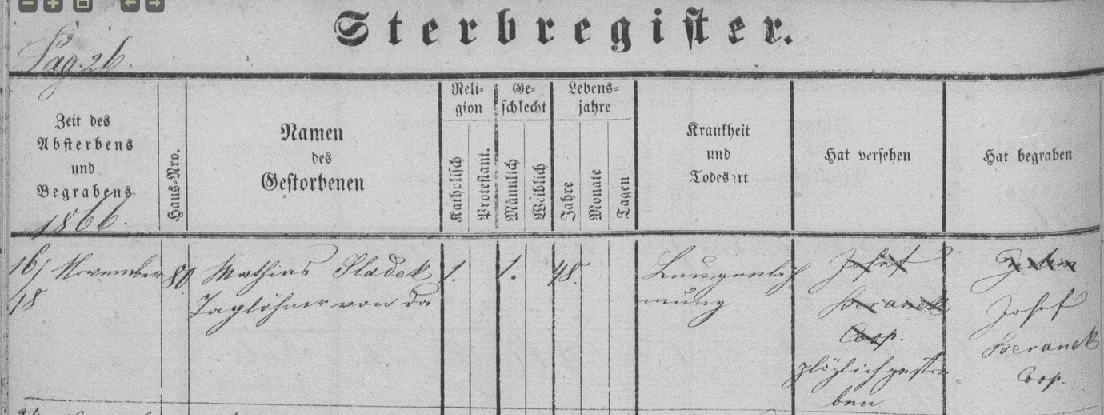 Sterbregister.
Pag. 26.
Zeit des
Absterbens
und
Begrabens
1866.
Haus-Nro.
Namen
des
Gestorbenen
Reli-
gion
Katholisch
Protestant.
Ge-
schlecht
Männlich
Weiblich
Lebens-
jahre
Jahre
Monate
Tagen
Krankheit
und
Todesart
Hat versehen
Hat begraben
16/ November
18
80
Mathias Sladek
Taglöhner von da
1.
1.
48.
Lungenläh
mung
Josef
Beranek
Coop.
plözlich gestor
ben
Josef
Beranek
Coop.